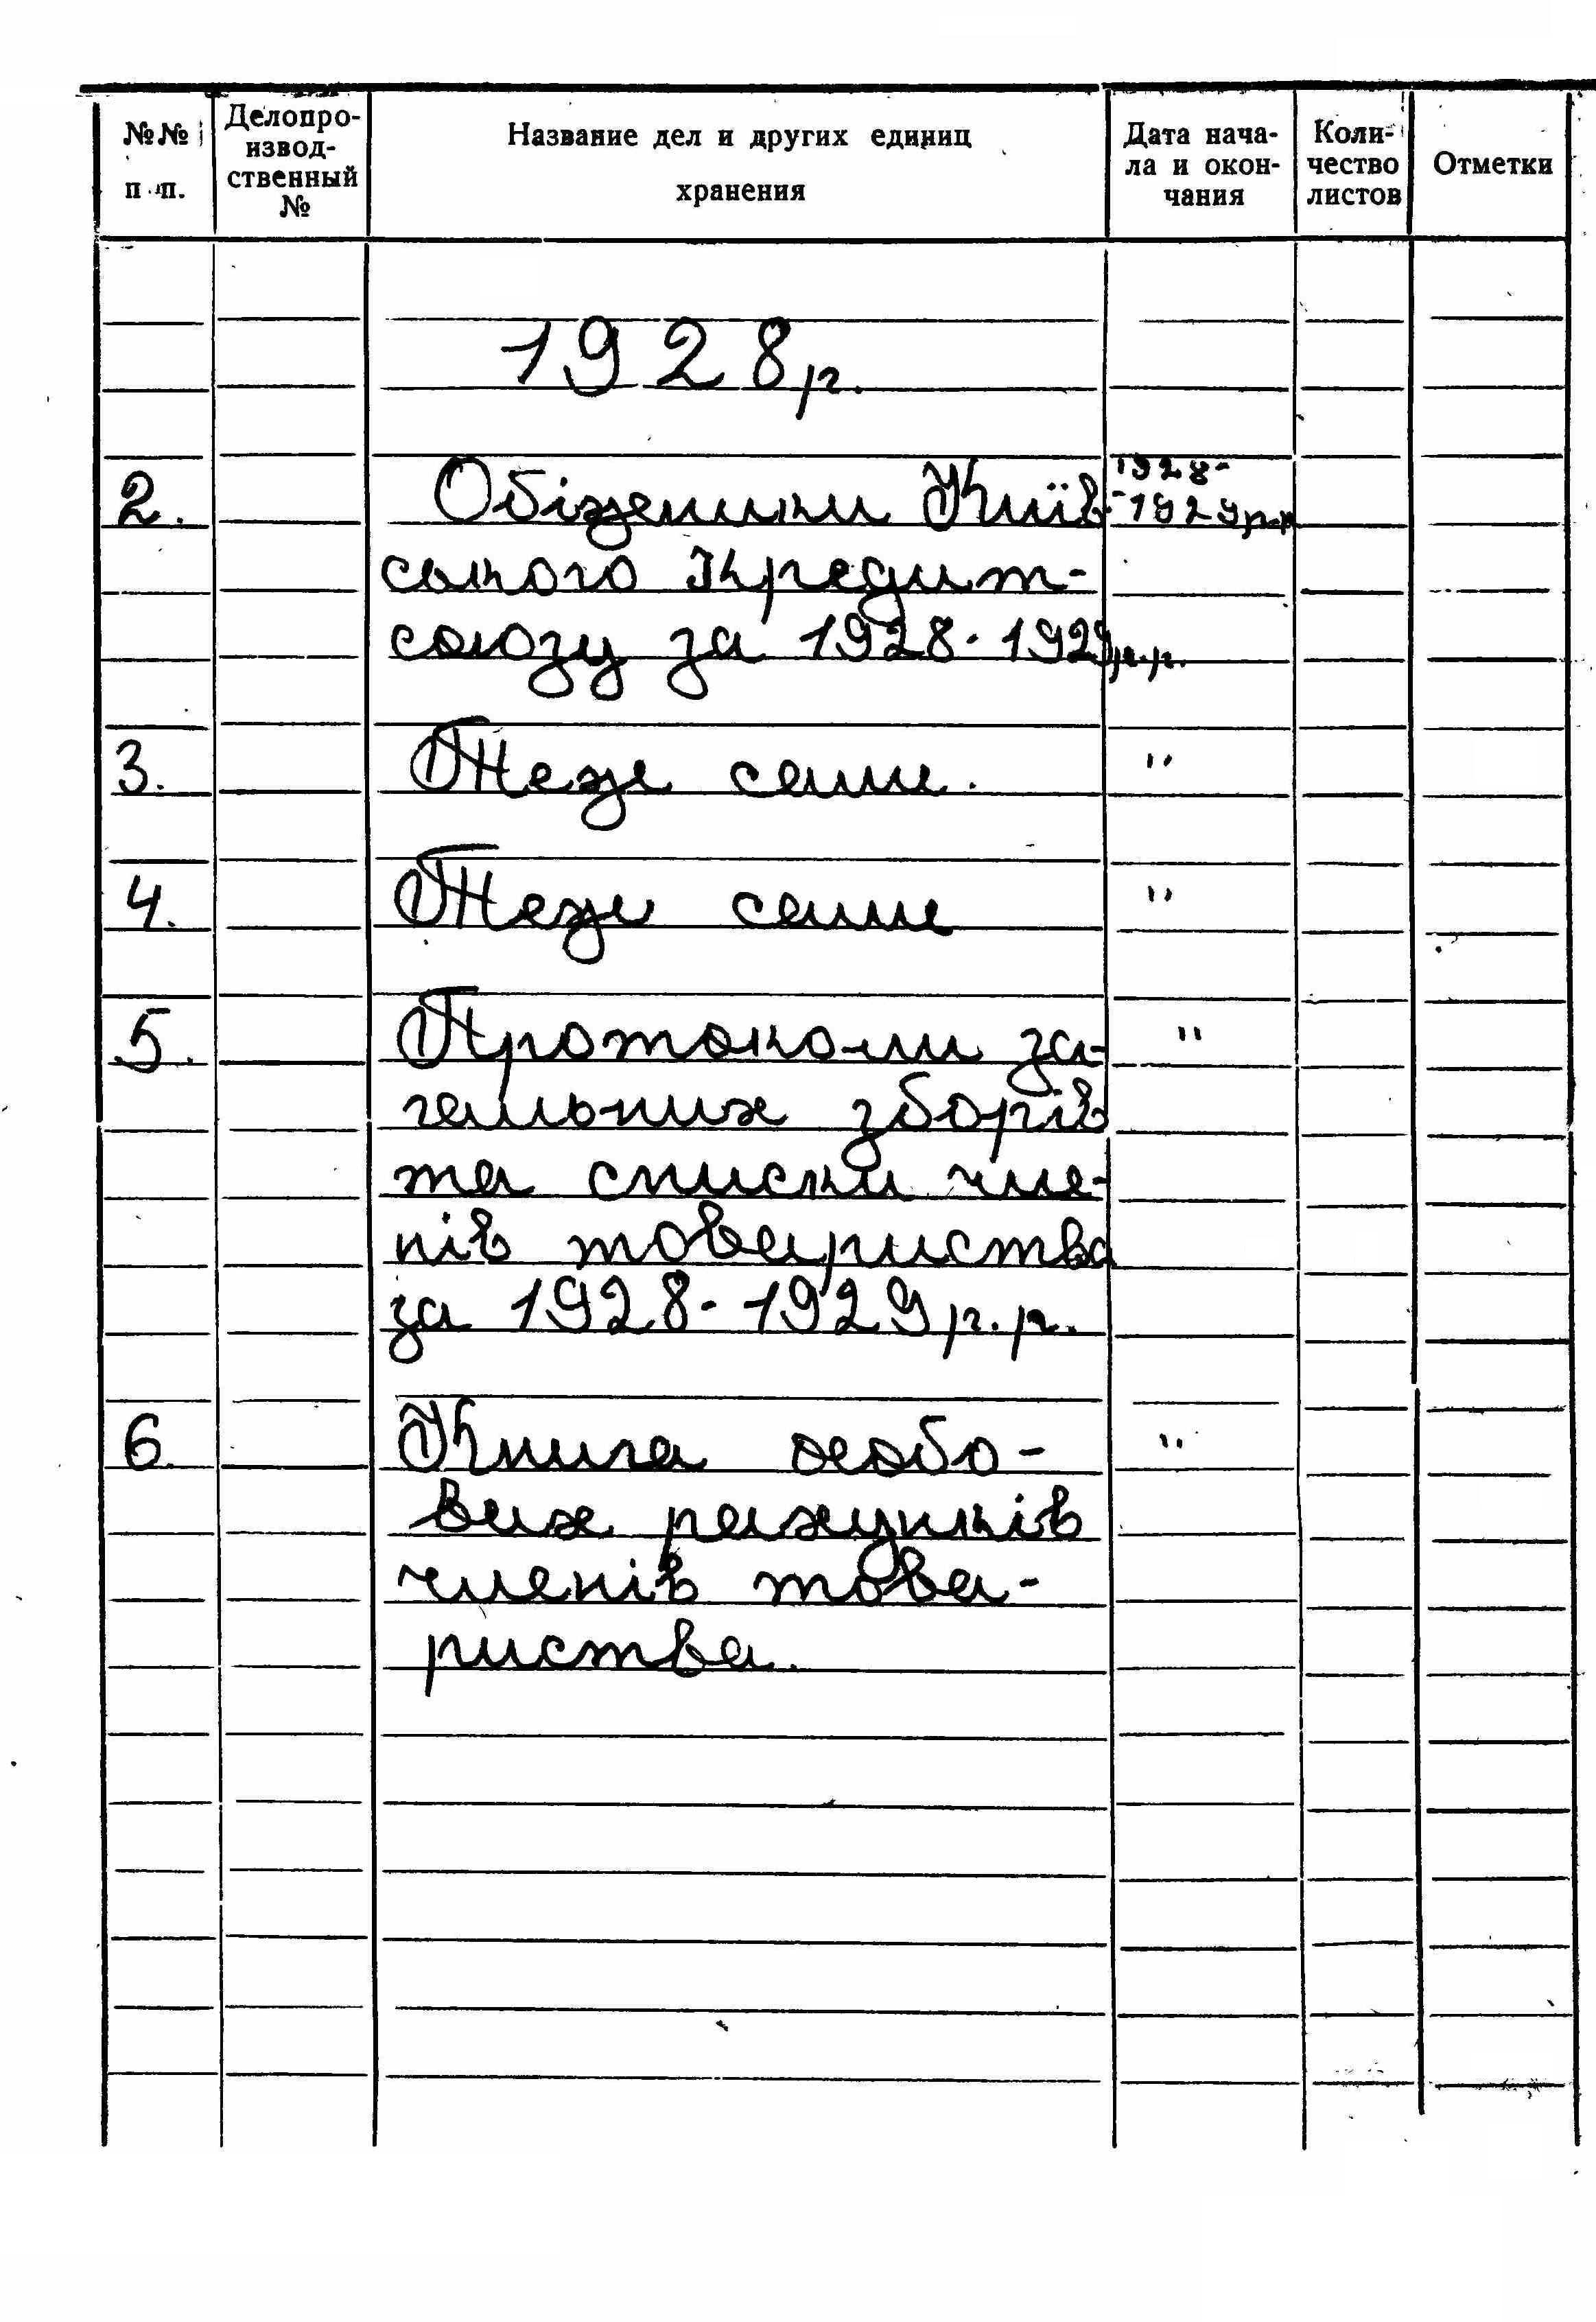 №№ п п.
Делопро-
извод-
ственный
№
Название дел и других единиц
хранения
Дата нача-
ла и окон-
чания
Коли-
чество
листов
Отметки
1928 р.
2. Обіжники Київ- 1928-
-1929 р.р.
ського Кредит-
союзу за 1928-1929 р.р.
3. Теж саме. "
4. Теж саме "
5. Протоколи за- "
гальних зборів
та списки чле-
нів товариства
за 1928-1929 р.р.
6. Книга особо- "
вих рахунків
членів това-
риства.